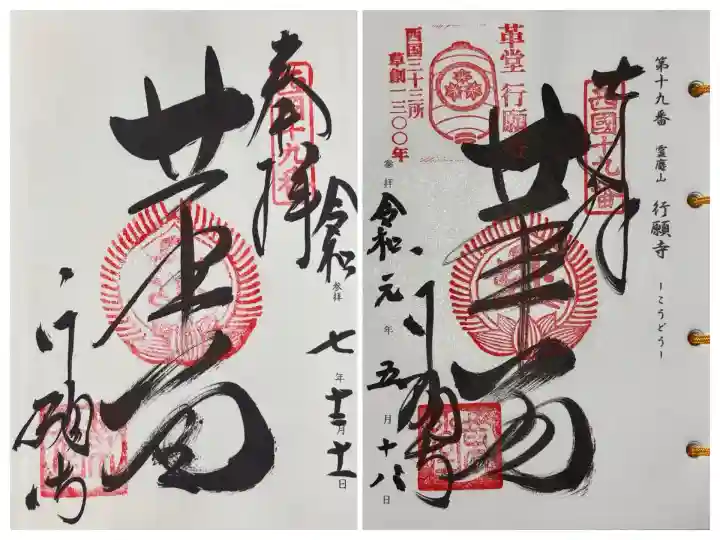 奉拝
西國十九番
革堂
行願寺
令和
参拝
七年十二月十一日
第十九番 霊麀山 行願寺 ーこうどうー
奉拝
西國十九番
革堂 行願寺
西国三十三所
草創一三〇〇年
革堂
行願寺
参拝
令和元年五月十八日